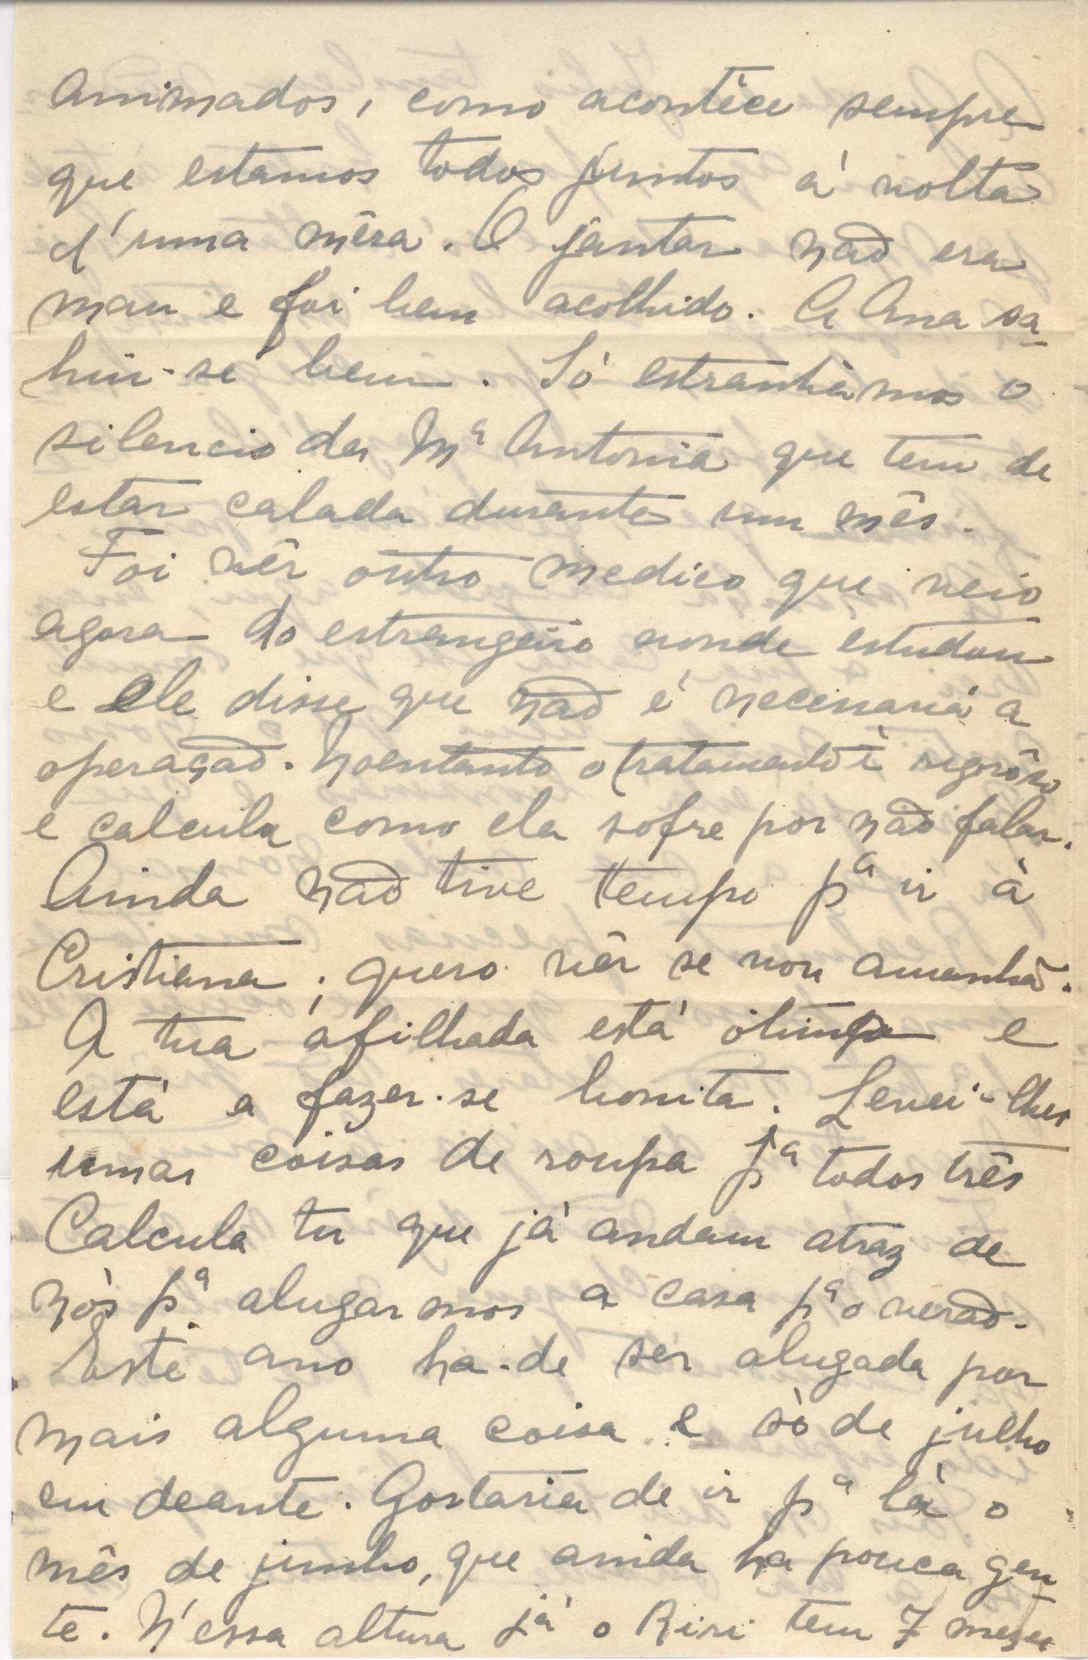 animados, como acontéce sempre
que estamos todos juntos á volta
d'uma mêsa. O jantar não era
mau e foi bem acolhido. A Ana sa-
hiu-se bem. Só estranhàmos o
silencio da Mª Antonia que tem de
estar calada durante um mês.
Foi vêr outro medico que veio
agora do estrangeiro aonde estudou
e ele disse que não é necessaria a
operação. Noentanto o tratamento é rigorôso
e calcula como ela sofre por não falar.
Ainda não tive tempo pª ir à
Cristiana; quero vêr se vou amanhã.
A tua afilhada está ótima e
está a fazer-se bonita. Levei-lhes
umas coisas de roupa pª todos três
Calcula tu que já andam atraz de
nós pª alugarmos a casa pª o verão.
Este ano ha-de ser alugada por
mais alguma coisa e só de julho
em deante. Gostaria de ir pª lá o
mês de junho, que ainda ha pouca gen-
te. N'essa altura já o Riri tem 7 meses